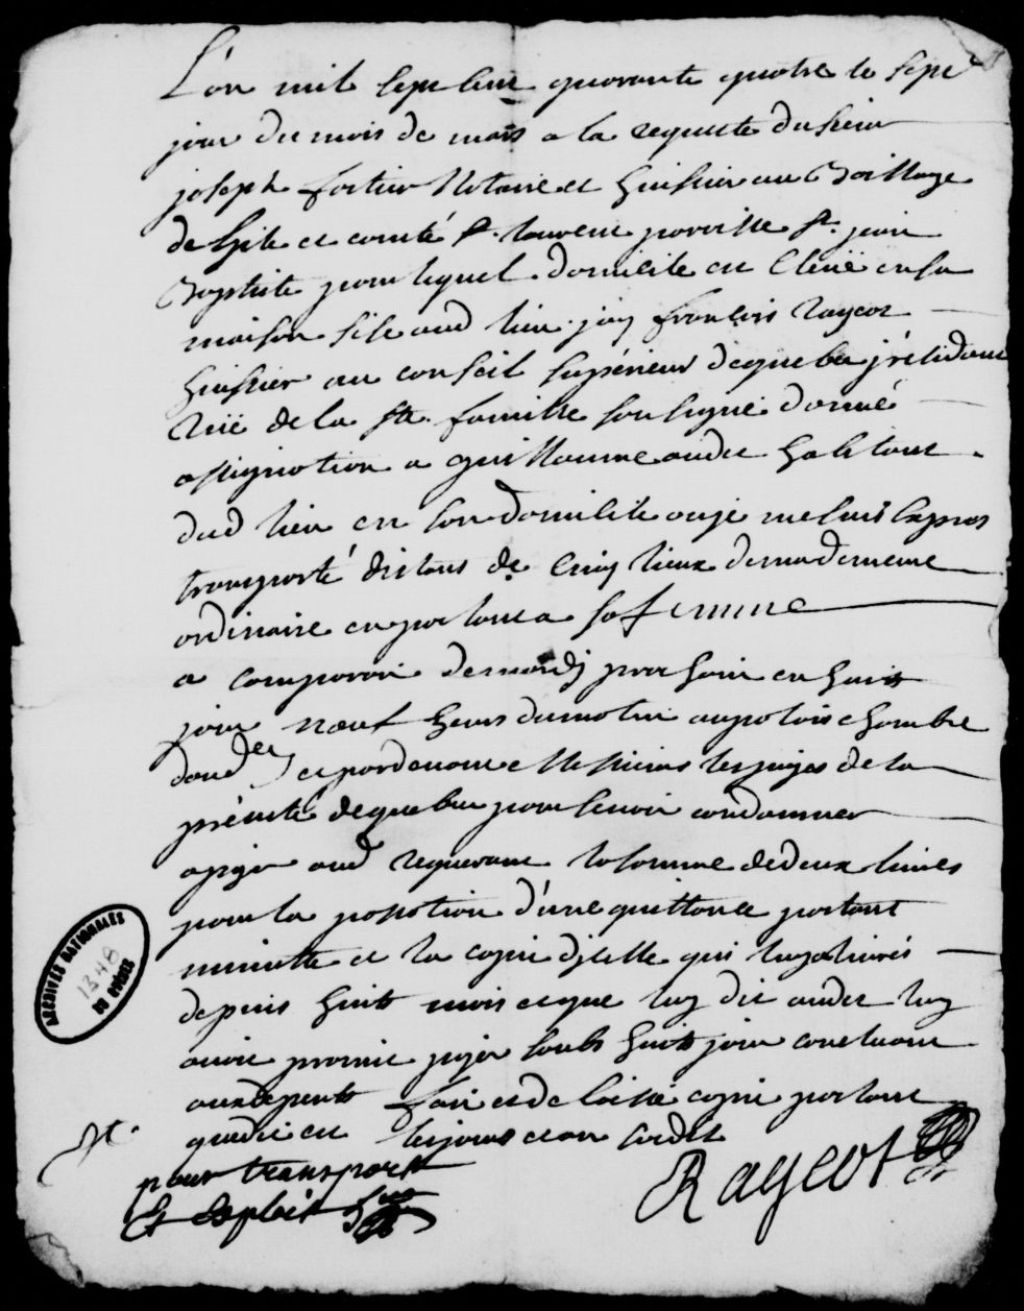 L'an mil sept cent quarante quatre le sept
jour du mois de mars a la requeste du sieur
joseph fortier Notaire et huissier au Baillage
de Lisle et comté St. laurent parroisse St. jean
Baptiste pour lequel domicile est Eleüe en sa
maison size aud lieu jay françois Rageot
huissier au conseil supérieur de quebec y résidant
Rüe de la Ste. famille sousigné donné
assignation a guillaume audet habitant
dud lieu en son domicile ou je me suis Expres
transporté distans de Cinq lieux de ma demeure
ordinaire en parlant a sa femme
a comparoir de mardy prochain en huitt
jour neuf heurs du matin au palais chambre
daud et pardevant Messieurs les juges de la
prévosté de quebec pour se voir condamner
a payer aud Requerant la somme de deux livres
pour la passation d'une quittance portant
minutte et la copie dicelle qui luy a livrés
depuis huitt mois et que led dit audet luy
avoir promis payer soubs huitt jour concluant
aux depents fait et delaissé copie parlant
que dit est les jours et an susdit
pour transport
Et Exploit
Rageot
ARCHIVES NATIONALES
1348
DU QUÉBEC